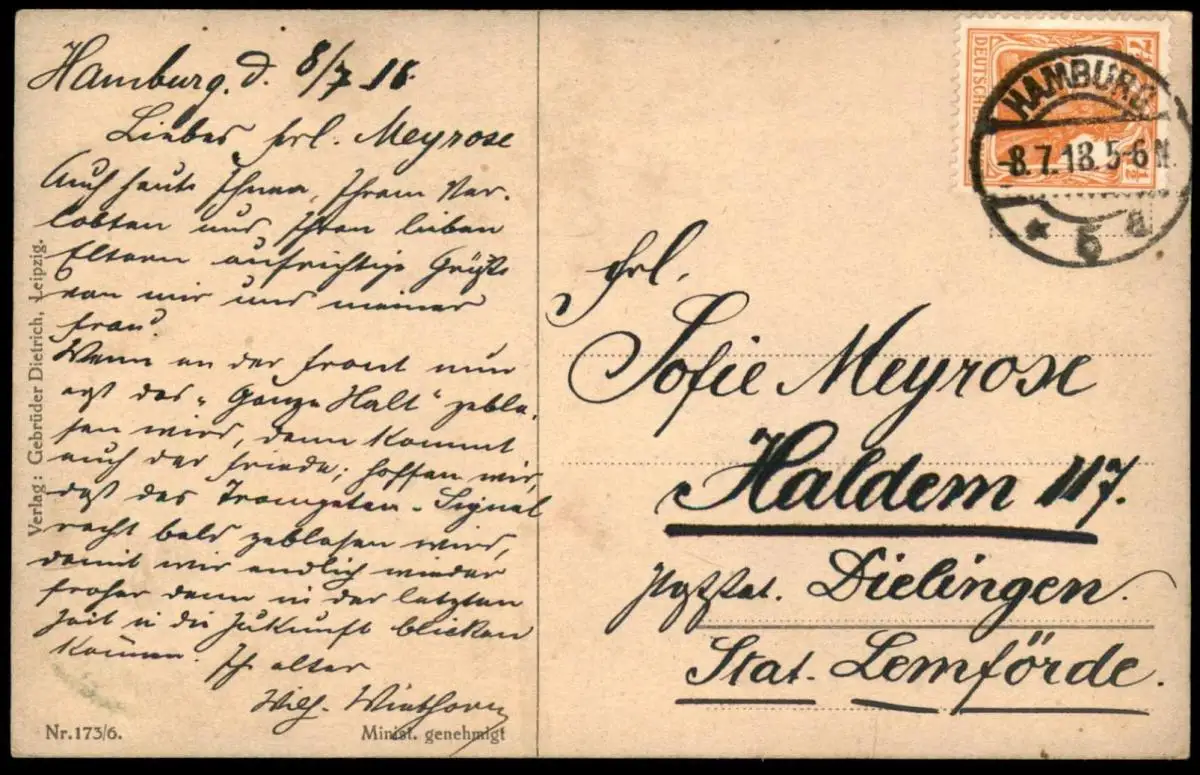 Hamburg, d. 8/7 18.
Liebes Frl. Meyrose
Auch heute Ihnen, Ihrem Ver-
lobten und Ihren lieben
Eltern aufrichtige Grüße
von mir und meiner
Frau.
Wenn an der Front nun
erst das „Ganze Halt" gebla-
sen wird, dann kommt
auch der Friede; hoffen wir,
daß das Trompeten-Signal
recht bald geblasen wird,
damit wir endlich wieder
froher denn in der letzten
Zeit in die Zukunft blicken
können. Ihr alter
Wilh.
Nr. 173/6.
Minist. genehmigt
Verlag: Gebrüder Dietrich, Leipzig.
DEUTSCHE
7½
7½
HAMBURG
-8.7.18. 5-6 N.
* 5 a
Frl.
Sofie Meyrose
Haldem 117.
Dielingen.
Stat. Lemförde.